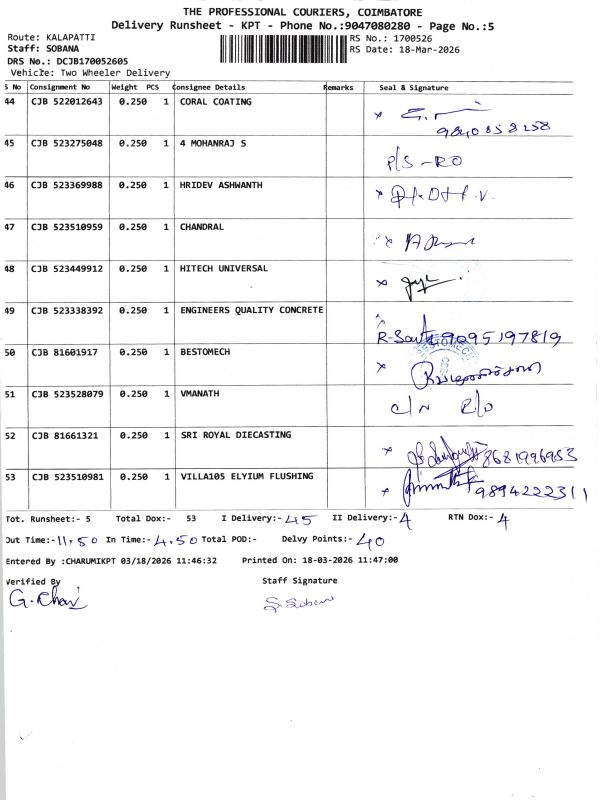 THE PROFESSIONAL COURIERS, COIMBATORE
Delivery Runsheet - KPT - Phone No.:9047080280 - Page No.:5
Route: KALAPATTI RS No.: 1700526
Staff: SOBANA RS Date: 18-Mar-2026
DRS No.: DCJB170052605
Vehicle: Two Wheeler Delivery
S No Consignment No Weight PCS Consignee Details Remarks Seal & Signature
44 CJB 522012643 0.250 1 CORAL COATING
9840858258
45 CJB 523275048 0.250 1 4 MOHANRAJ S P/S - RO
46 CJB 523369988 0.250 1 HRIDEV ASHWANTH
47 CJB 523510959 0.250 1 CHANDRAL
48 CJB 523449912 0.250 1 HITECH UNIVERSAL
49 CJB 523338392 0.250 1 ENGINEERS QUALITY CONCRETE
9095197819
50 CJB 81601917 0.250 1 BESTOMECH
51 CJB 523528079 0.250 1 VMANATH C/N R/O
52 CJB 81661321 0.250 1 SRI ROYAL DIECASTING
8681996953
53 CJB 523510981 0.250 1 VILLA105 ELYIUM FLUSHING
9894222311
Tot. Runsheet:- 5 Total Dox:- 53 I Delivery:- 45 II Delivery:- 4 RTN Dox:- 4
Out Time:- 11.50 In Time:- 4.50 Total POD:- Delvy Points:- 40
Entered By :CHARUMIKPT 03/18/2026 11:46:32 Printed On: 18-03-2026 11:47:00
Verified By Staff Signature